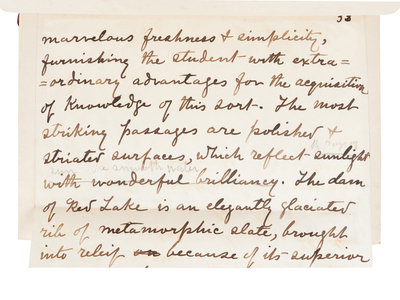 33
marvelous freshness & simplicity,
furnishing the student with extra=
=ordinary advantages for the acquisition
of Knowledge of this sort. The most
striking passages are polished &
striated surfaces, which reflect sunlight
smooth water
with wonderful brilliancy. The dam
of Red Lake is an elegantly glaciated
rib of metamorphic slate, brought
into releif on because of its superior